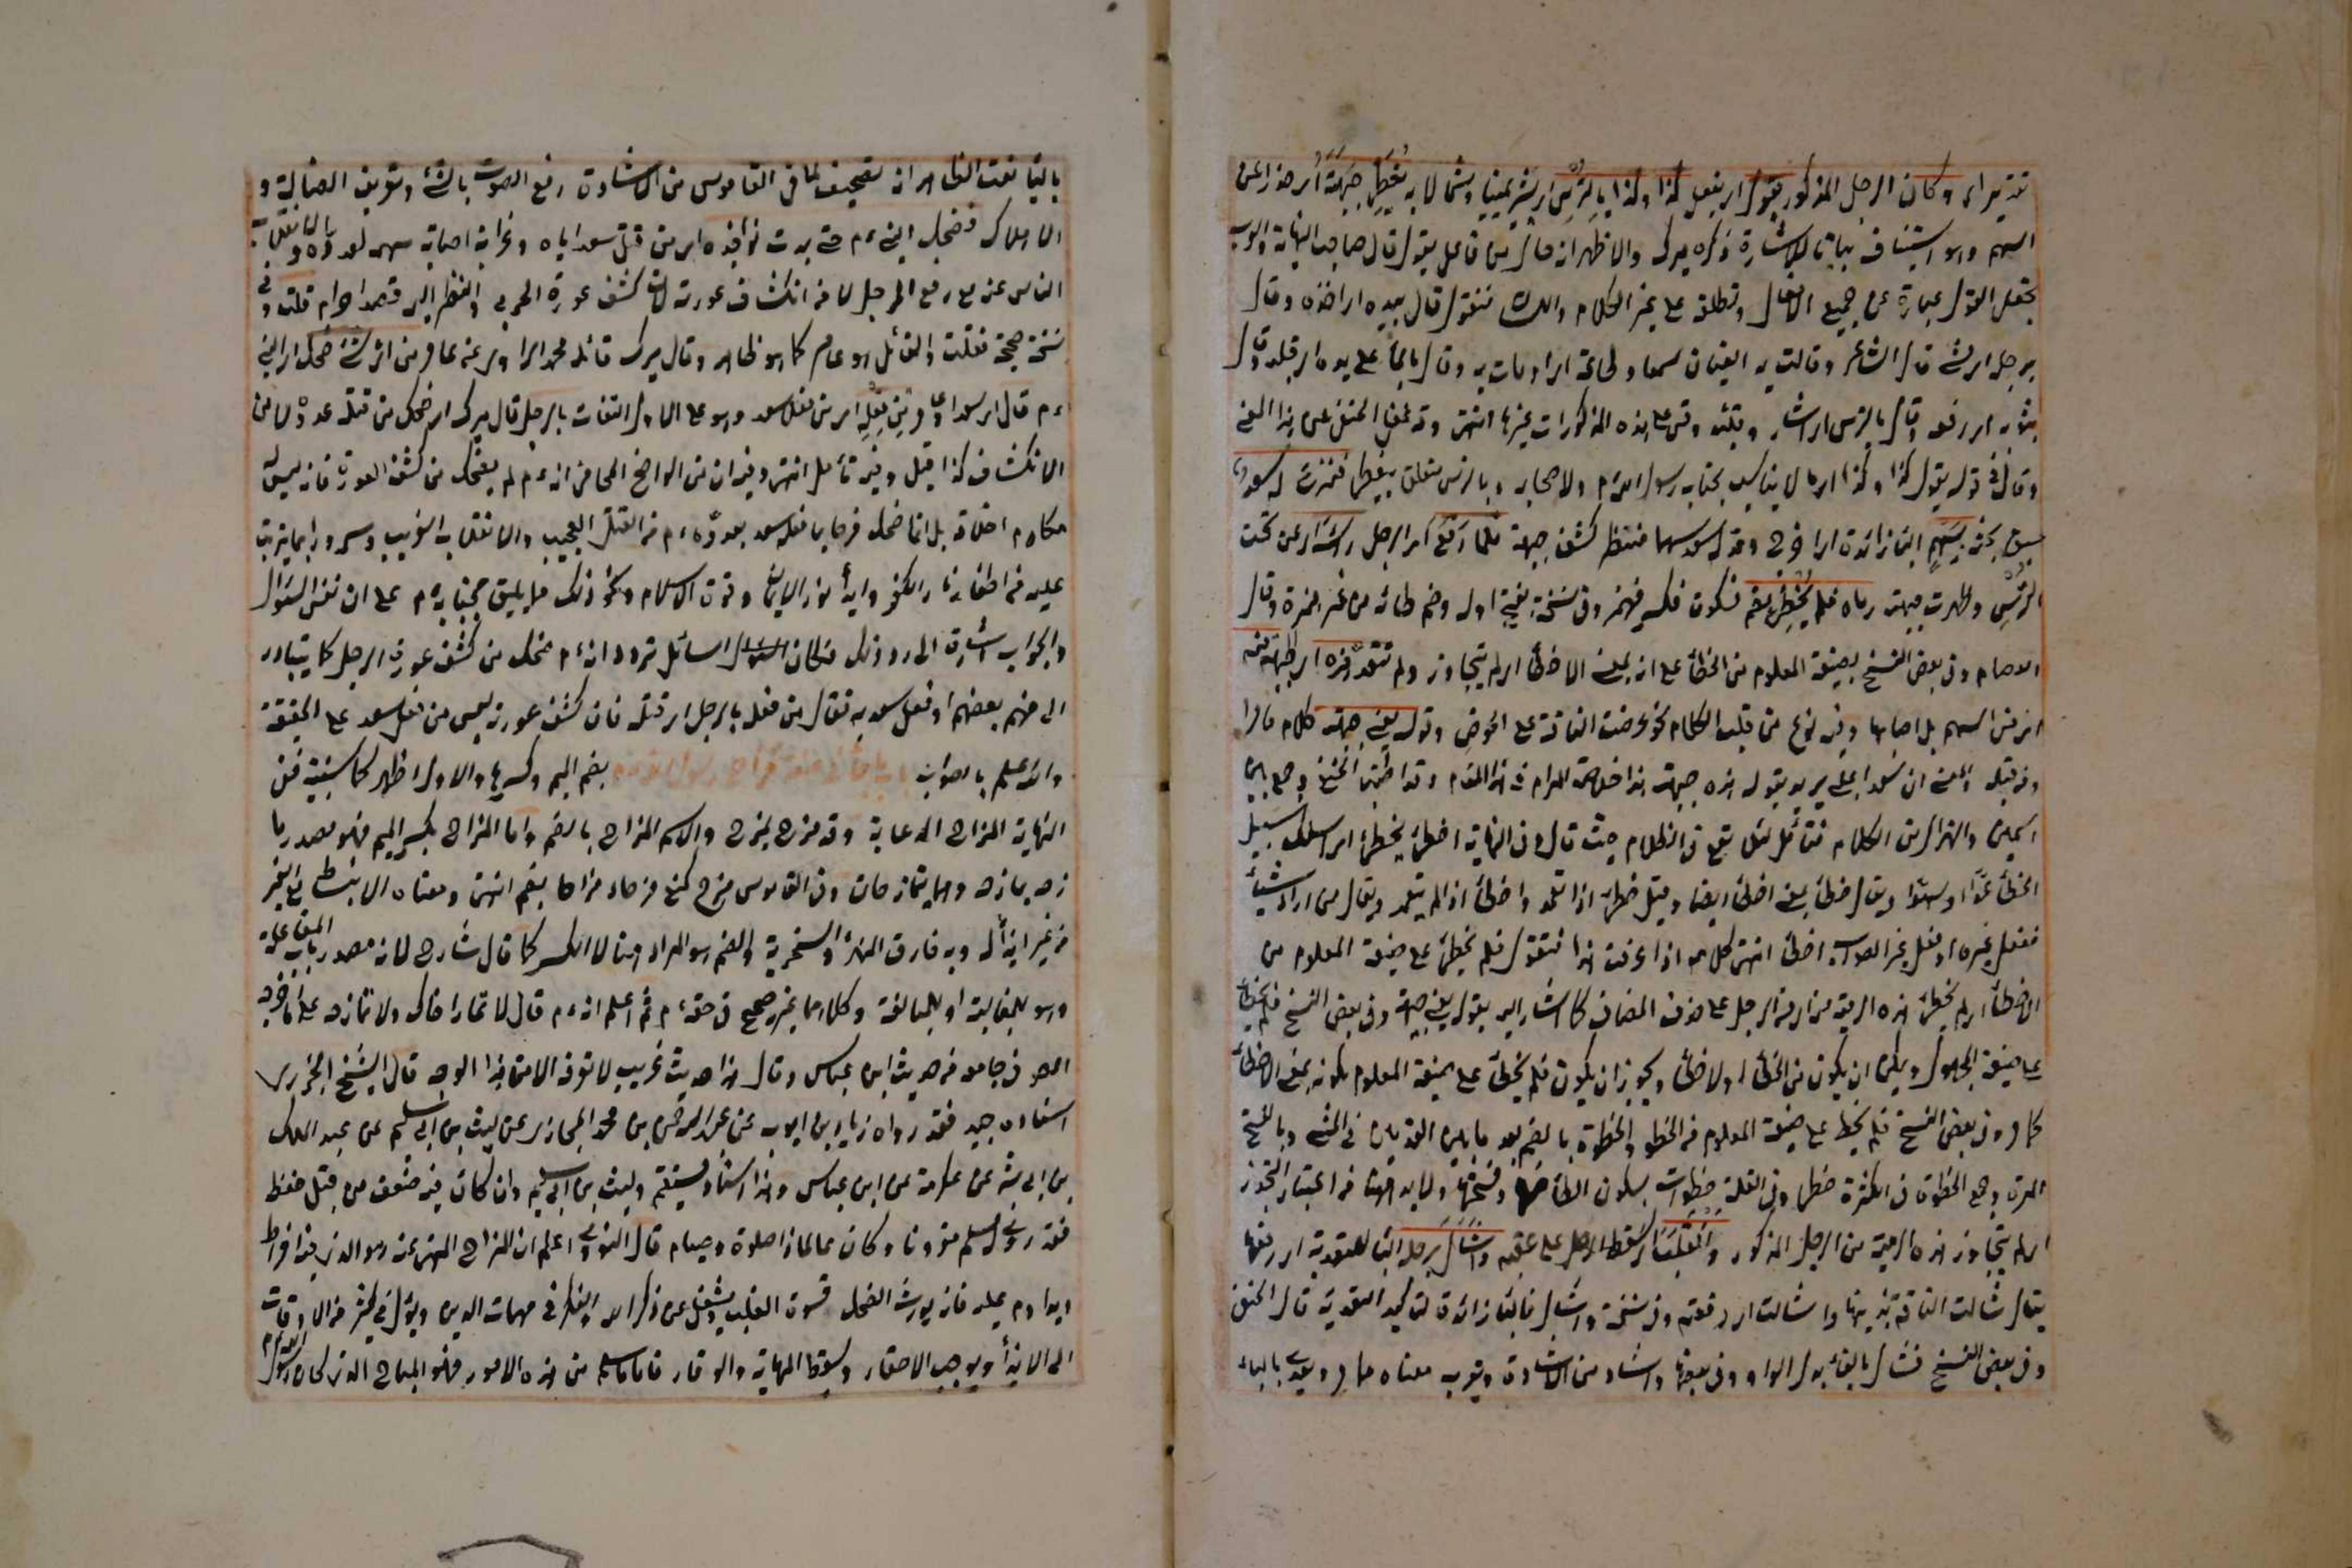 وكان الرجل المذكور يقول اي يفعل كذا وكذا بالترس اي يشير يمينا وشمالا به يغطي جبهته اي حذرا عن
السهم وهو استيناف بيان للاشارة ذكره ميرك والاظهر انه حال من فاعل يقول قال صاحب النهاية والعرب
تجعل القول عبارة عن جميع الافعال وتطلقه على غير الكلام واللسان فتقول قال بيده اي اخذه وقال
برجله اي مشى قال الشاعر وقالت له العينان سمعا وطاعة اي اومات به وقال بالماء على يده اي قلبه وقال
بثوبه اي رفعه وقال بالترس اي اشار وقلبه وقس على هذه المذكورات غيرها انتهى وقد غفل الحنفي عن هذا المعنى
وقال في قوله يقول كذا وكذا اي ما لا يناسب بجناب رسول الله ولاصحابه وبالترس متعلق بيغطي فنزع له سعد
بسهم الباء زائدة اي اخرج وقد له سعد سهما منتظرا كشف جبهته فلما رفع اي الرجل راسه اي عن تحت
الترس وظهرت جبهته رماه فلم يخطئ بضم فسكون فكسر فهمز وفي نسخة بفتح اوله وضم طائه من غير همزة وقال
العصام وفي بعض النسخ بصيغة المعلوم من الخطأ على انه بمعنى الاخطأ اي لم يتجاوز ولم تتعد هذه اي جبهته
من السهم بل اصابها وفيه نوع من قلب الكلام نحو عرضت الناقة على الحوض وقوله يعني جبهته كلام
من قبله والمعنى ان سعدا يريد بقوله هذه جبهته هذا خلاصة المرام في هذا المقام وقد اطنب الحنفي وجمع بين
السمين والهزال من الكلام فتأمل لئلا تقع في الظلام حيث قال وفي النهاية اخطأ يخطئ اي سلك سبيل
الخطأ عمدا او سهوا ويقال خطئ بمعنى اخطأ ايضا وقيل خطئ اذا تعمد واخطأ اذا لم يتعمد ويقال لمن اراد شيئا
ففعل غيره او فعل غير الصواب اخطأ انتهى كلامه اذا عرفت هذا فنقول فلم يخطئ على صيغة المعلوم من
الاخطأ اي لم يخطئ هذه الرمية من الرجل على حذف المضاف كما اشار اليه بقوله يعني جبهته وفي بعض النسخ فلم يخطأ
على صيغة المجهول ويمكن ان يكون من الخطأ والاخطأ ويجوز ان يكون فلم يخطئ على صيغة المعلوم بكونه بمعنى الاخطأ
كما مر وفي بعض النسخ فلم يخط على صيغة المعلوم من الخطو والخطوة بالضم بعد ما بين القدمين في المشي وبالفتح
المرة وجمع الخطوة في الكثرة خطى وفي القلة خطوات بسكون الطاء وضمها وفتحها ولا بد ههنا من اعتبار التجوز
اي لم يتجاوز هذه الرمية من الرجل المذكور وانقلب اي سقط الرجل على عقبه وشال برجله الباء للتعدية اي رفعها
يقال شالت الناقة بذنبها واشالت اي رفعته وفي نسخة واشال فالباء زائدة لتأكيد التعدية قال الحنفي
وفي بعض النسخ فشال بالفاء بدل الواو وفي بعضها واشاد من الاشادة ويقرب معناه مما مر ويعدى بالباء
انه تصحيف لما في القاموس من الاشادة رفع الصوت بالشئ وتعريف الضالة و
الاهلاك فضحك النبي ءم حتى بدت نواجذه اي من قتل سعد اياه وغرابة اصابة سهمه لعدوه والانقلاب
الناشي عنه مع رفع الرجل لا من انكشاف عورته لان كشف عورة الحربي والنظر اليها قصدا حرام قلت وفي
نسخة صحيحة فقلت والقائل هو عامر كما هو ظاهر وقال ميرك قائله محمد الراوي عن عامر من اي شئ ضحك اي النبي
ءم قال اي سعد او عامر من فعله اي من فعل سعد وهو على الاول التفات بالرجل قال ميرك اي ضحك من قتله عدوه لا من
الانكشاف كذا قيل وفيه تأمل انتهى وفيه ان من الواضح الجلي انه ءم لم يضحك من كشف العورة فانه ليس من
مكارم اخلاقه بل انما ضحك فرحا بما فعله سعد بعدوه ءم من القتل العجيب والانقلاب الغريب وسرورا بما يترتب
عليه من اطفاء نار الكفر وابداء نور الايمان وقوة الاسلام ونحو ذلك مما يليق بجنابه ءم على ان نفس السؤال
والجواب اشارة الى رد ذلك فكان السائل تردد انه ءم ضحك من كشف عورة الرجل كما يتبادر
الى فهم بعضهم او فعل سعد به فقال من فعله بالرجل اي قتله فان كشف عورته ليس من فعل سعد على الحقيقة
والله اعلم بالصواب باب ما جاء في صفة مزاح رسول الله بضم الميم وكسرها والاول اظهر كما سنبينه ففي
النهاية المزاح الدعابة وقد مزح يمزح والاسم المزاح بالضم واما المزاح بكسر الميم فهو مصدر ما
زحه يمازحه وهما يتمازحان وفي القاموس مزح كمنع مزحا ومزاحا بضم انتهى ومعناه الانبساط مع الغير
من غير ايذاء له وبه فارق الهزء والسخرية والضم هو المراد هنا لا الكسر كما قال شارح لانه مصدر باب المفاعلة
وهو للمغالبة او للمبالغة وكلاهما غير صحيح في حقه ءم ثم اعلم انه ءم قال لا تمار اخاك ولا تمازحه على ما اخرجه
المص في جامعه من حديث ابن عباس وقال هذا حديث غريب لا نعرفه الا من هذا الوجه قال الشيخ الجزري
اسناده جيد فقد رواه زياد بن ايوب عن عبد الرحمن بن محمد المحاربي عن ليث بن ابي سليم عن عبد الملك
بن ابي بشير عن عكرمة عن ابن عباس وهذا اسناد مستقيم وليث بن ابي سليم وان كان فيه ضعف من قبل حفظه
فقد روى له مسلم مقرونا وكان عالما ذا صلوة وصيام قال النووي اعلم ان المزاح المنهي عنه هو الذي فيه افراط
ويداوم عليه فانه يورث الضحك وقسوة القلب ويشغل عن ذكر الله والفكر في مهمات الدين ويؤل في كثير من الاوقات
الى الايذاء ويوجب الاحقاد ويسقط المهابة والوقار فاما ما سلم من هذه الامور فهو المباح الذي كان رسول الله ءم